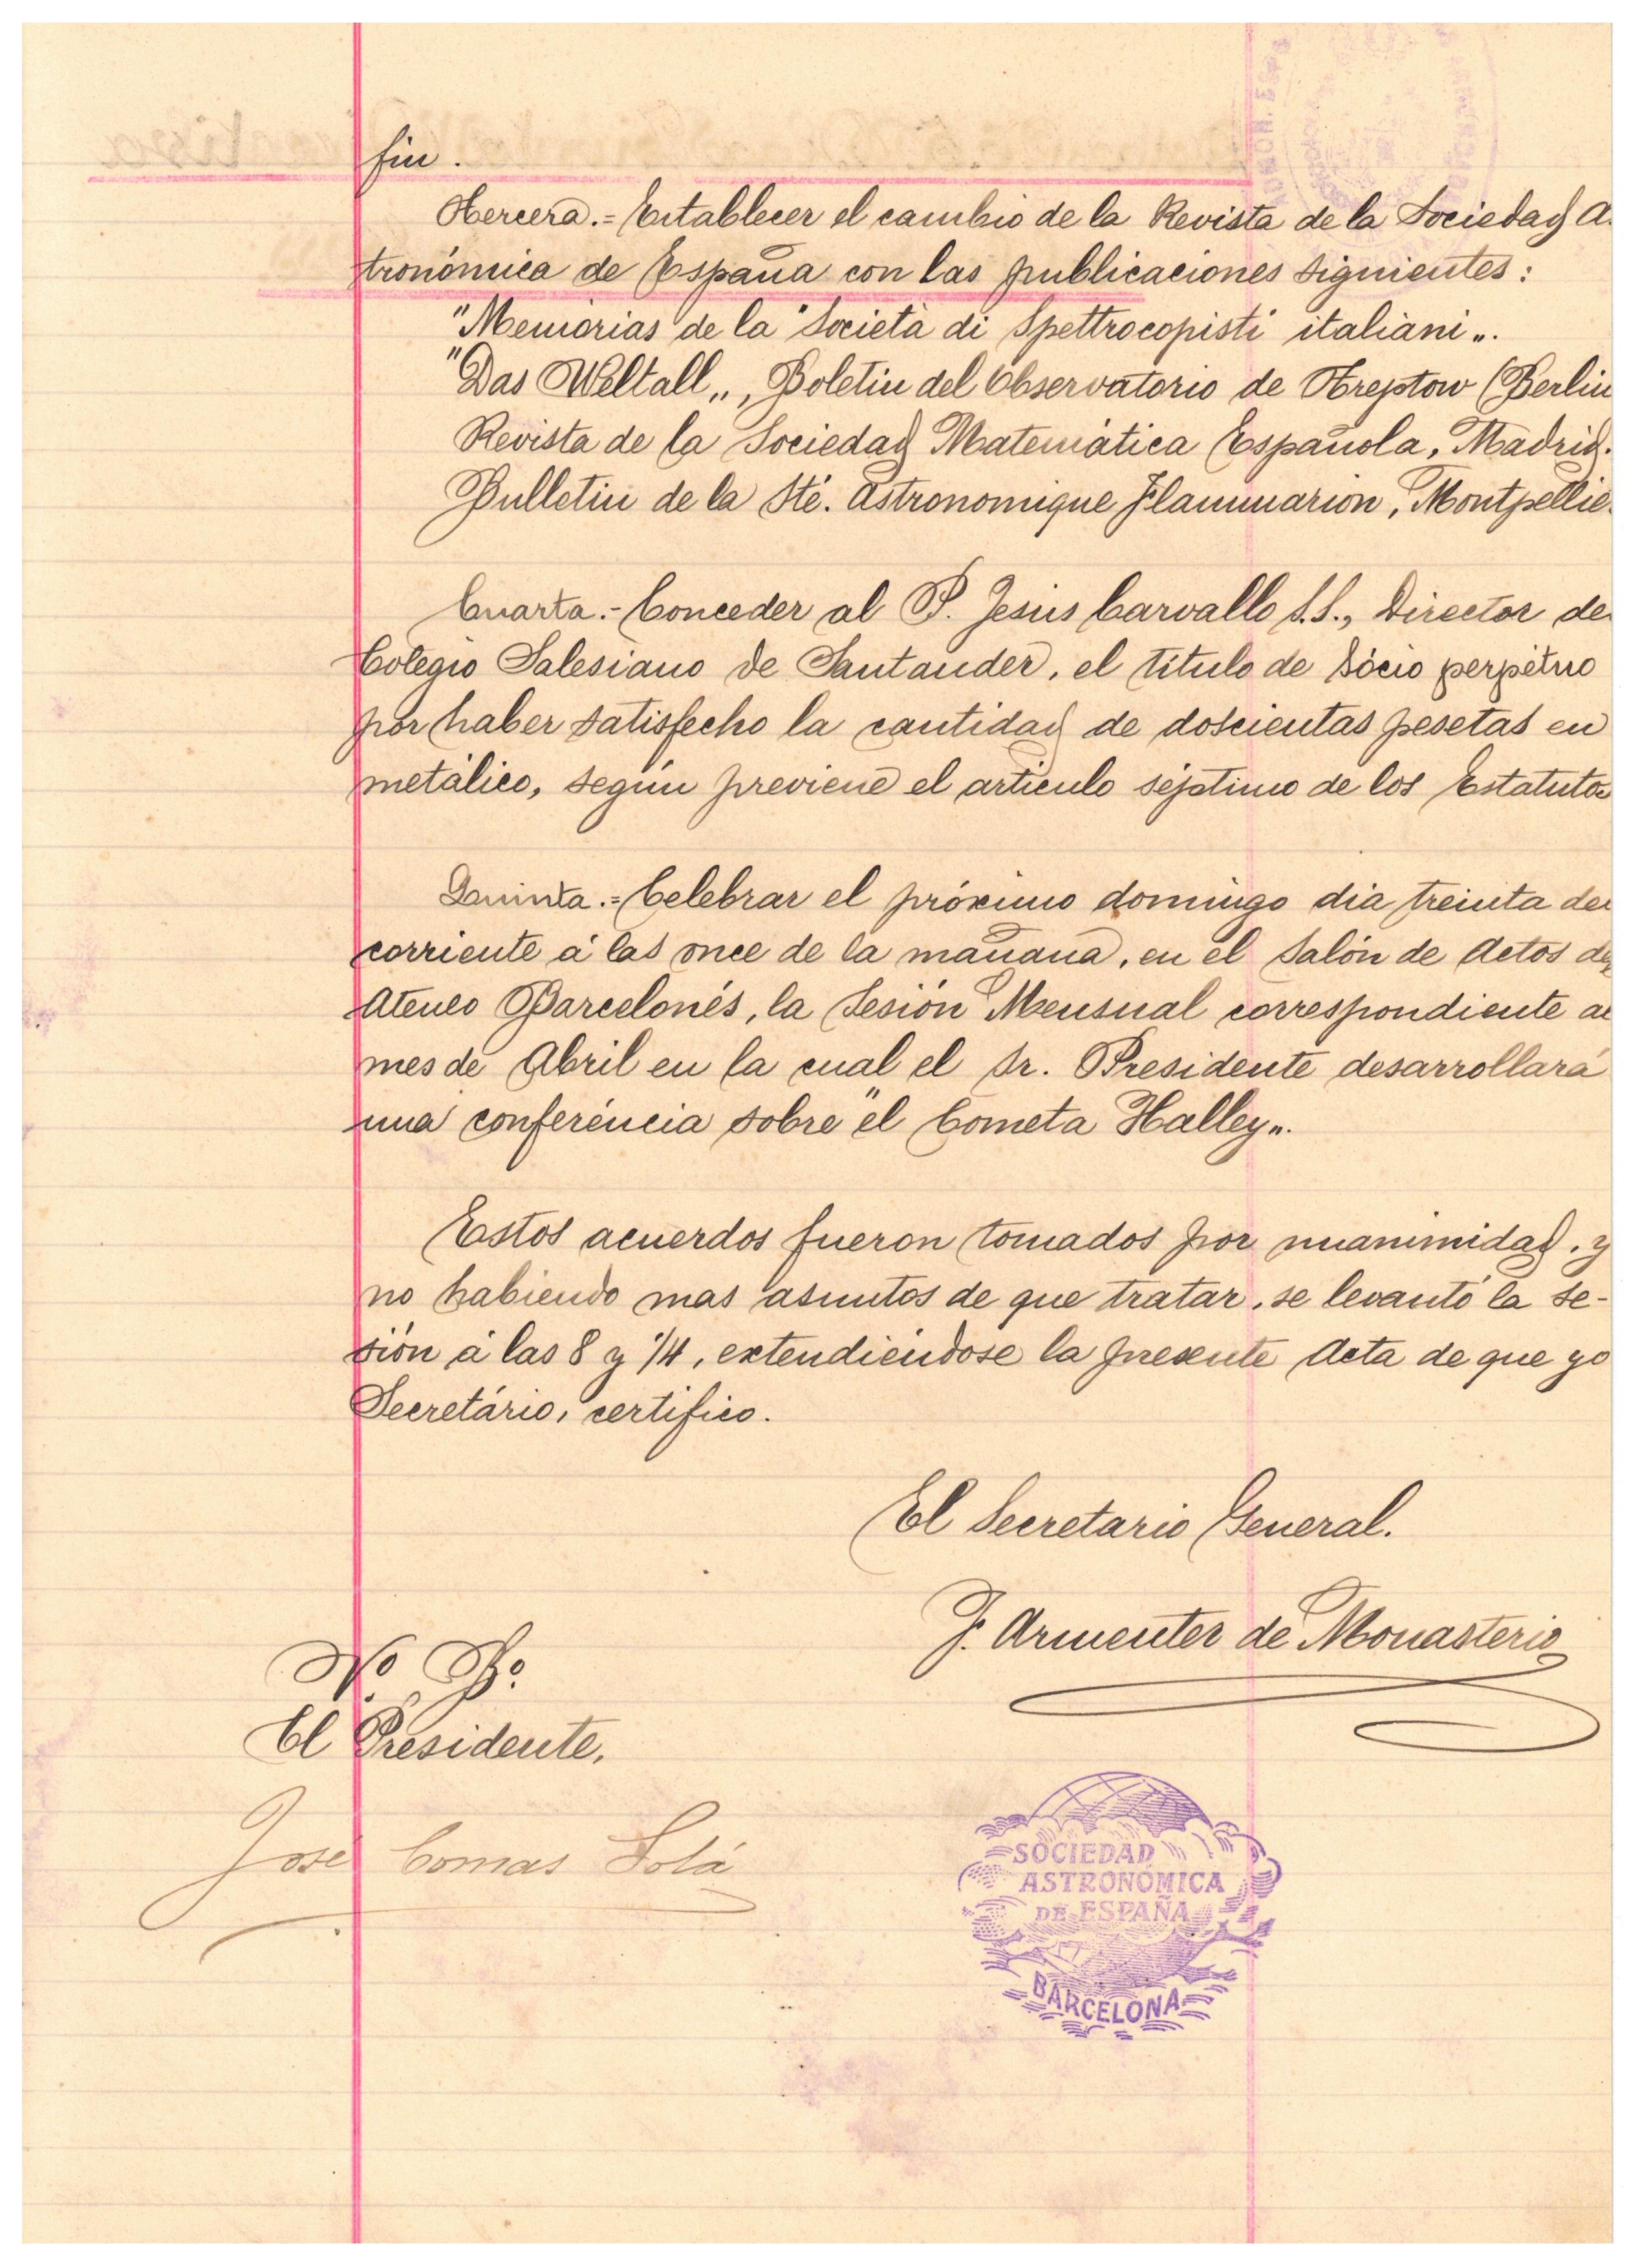 fin.
Tercera.= Establecer el cambio de la Revista de la Sociedad A
tronómica de España con las publicaciones siguientes:
"Memorias de la "Società di Spettrocopisti italiani„.
"Das Weltall„, Boletin del Observatorio de Treptow (Berlin
Revista de la Sociedad Matemática Española, Madrid.
Bulletin de la Sté. Astronomique Flammarion, Montpellie
Cuarta.- Conceder al P. Jesús Carvallo S.S., Director de
Colegio Salesiano de Santander, el título de sócio perpétuo
por haber satisfecho la cantidad de doscientas pesetas en
metálico, según previene el artículo séptimo de los Estatutos
Quinta.= Celebrar el próximo domingo dia treinta del
corriente á las once de la mañana, en el Salón de Actos del
Ateneo Barcelonés, la Sesión Mensual correspondiente al
mes de Abril en la cual el Sr. Presidente desarrollará
una conferéncia sobre "el Cometa Halley„.
Estos acuerdos fueron tomados por unanimidad, y
no habiendo mas asuntos de que tratar, se levantó la se-
sión á las 8 y 1/4, extendiéndose la presente Acta de que yo
Secretário, certifico.
El Secretario General.
J. Armenter de Monasterio
Vº Bº
El Presidente,
José Comas Solá
SOCIEDAD
ASTRONÓMICA
DE ESPAÑA
BARCELONA